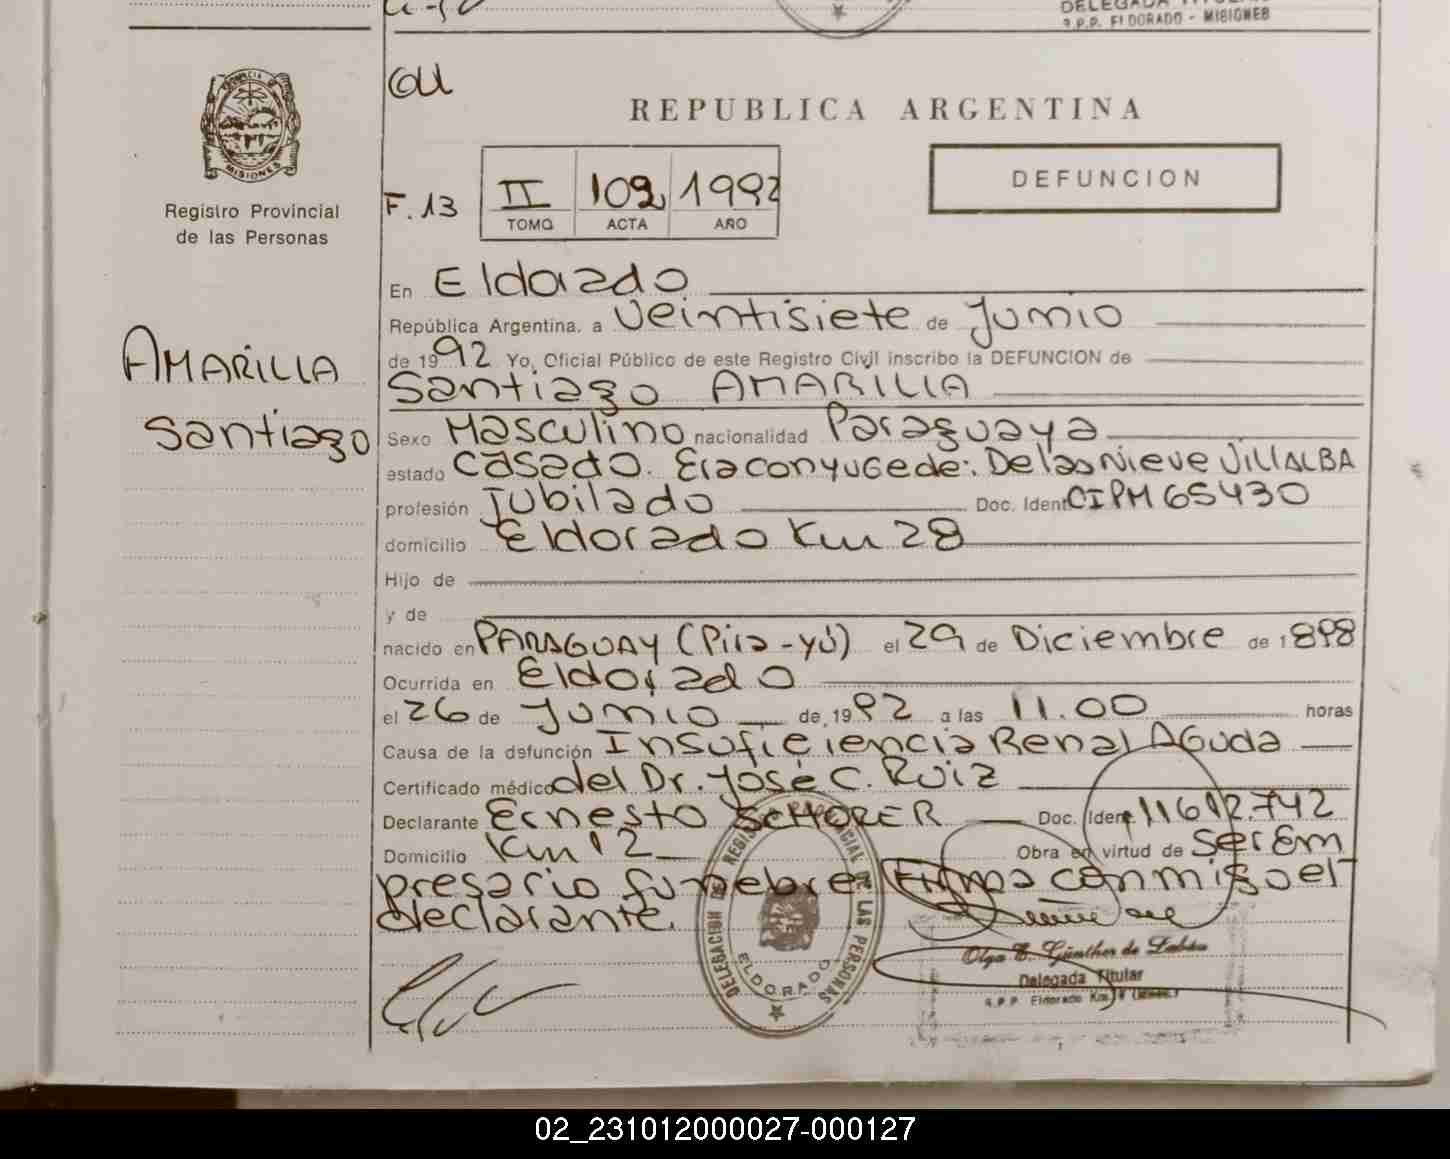 DELEGADA TITULAR
R.P.P. ELDORADO - MISIONES
PROVINCIA DE
MISIONES
Registro Provincial
de las Personas
AMARILLA
Santiago
REPUBLICA ARGENTINA
F. 13
II 102 1992
TOMO ACTA AÑO
DEFUNCION
En Eldorado
República Argentina, a Veintisiete de Junio
de 1992 Yo, Oficial Público de este Registro Civil inscribo la DEFUNCION de
Santiago AMARILLA
Sexo Masculino nacionalidad Paraguaya
estado casado. Era conyuge de: De las Nieve VILLALBA
profesión Jubilado Doc. Ident CIPM 65430
domicilio Eldorado Km 28
Hijo de
y de
nacido en PARAGUAY (Pira-yú) el 29 de Diciembre de 1898
Ocurrida en Eldorado
el 26 de Junio de 1992 a las 11.00 horas
Causa de la defunción Insuficiencia Renal Aguda
Certificado médico del Dr. José C. Ruiz
Declarante Ernesto SCHORER Doc. Ident 11612.742
Domicilio Km 12 Obra en virtud de Ser Em
presario funebre Firma conmigo el
declarante.
DELEGACION DEL REGISTRO PROVINCIAL DE LAS PERSONAS
ELDORADO
Olga E. Günther de
Delegada Titular
R.P.P. Eldorado Km
02_231012000027-000127